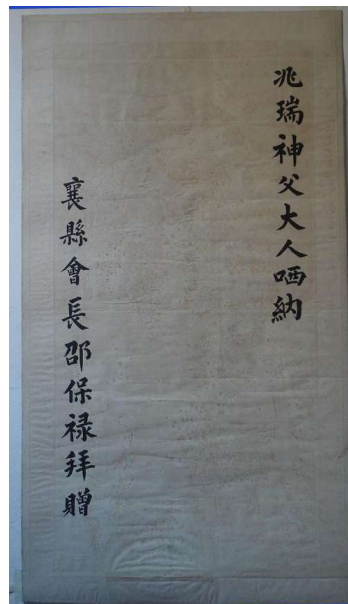 兆瑞神父大人哂納
襄縣會長邵保禄拜贈